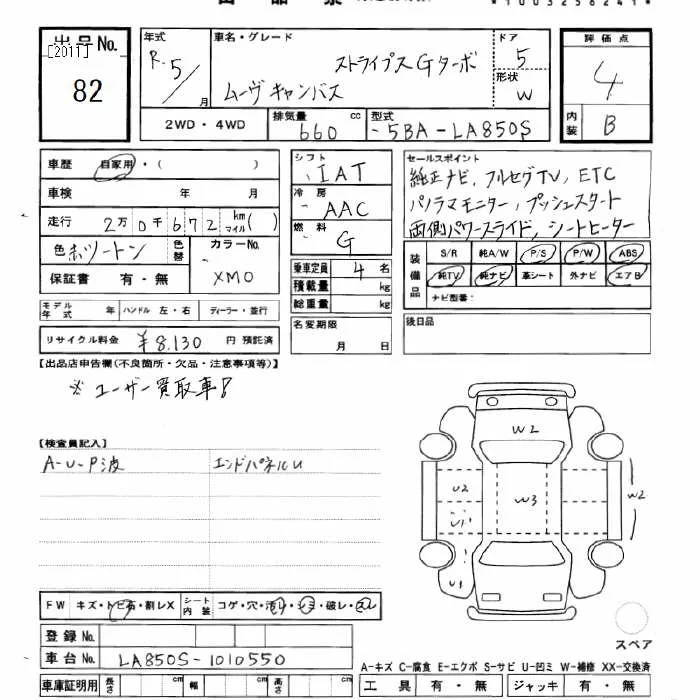 *1003258241*
出品No.
[2011]
82
年式
R. 5
月
車名・グレード
ストライプスGターボ
ムーヴキャンバス
ドア
5
形状
W
評価点
4
内装
B
2WD・4WD
排気量
660 cc
型式
-5BA-LA850S
車歴 自家用・( )
車検 年 月
走行 2万0千672 km マイル( )
色 赤ツートン
色替
カラーNo.
XMO
保証書 有・無
モデル年式 年 ハンドル 左・右 ディーラー・並行
リサイクル料金 ¥8,130 円 預託済
シフト
IAT
冷房
AAC
燃料
G
乗車定員 4 名
積載量 kg
総重量 kg
名変期限
月 日
セールスポイント
純正ナビ, フルセグTV, ETC
パノラマモニター, プッシュスタート
両側パワースライド, シートヒーター
装備品
S/R 純A/W P/S P/W ABS
純TV 純ナビ 革シート 外ナビ エアB
ナビ型番:
後日品
【出品店申告欄(不良箇所・欠品・注意事項等)】
※ユーザー買取車!
【検査員記入】
A-U-P波
エンドパネルU
W2
U2
W3
U1
W2
U1
スペア
FW キズ・トビ石・割レX
シート内装 コゲ・穴・汚レ・シミ・破レ・スレ
登録No.
車台No. LA850S-1010550
車庫証明用 長さ cm 幅 cm 高さ cm
A-キズ C-腐食 E-エクボ S-サビ U-凹ミ W-補修 XX-交換済
工具 有・無 ジャッキ 有・無